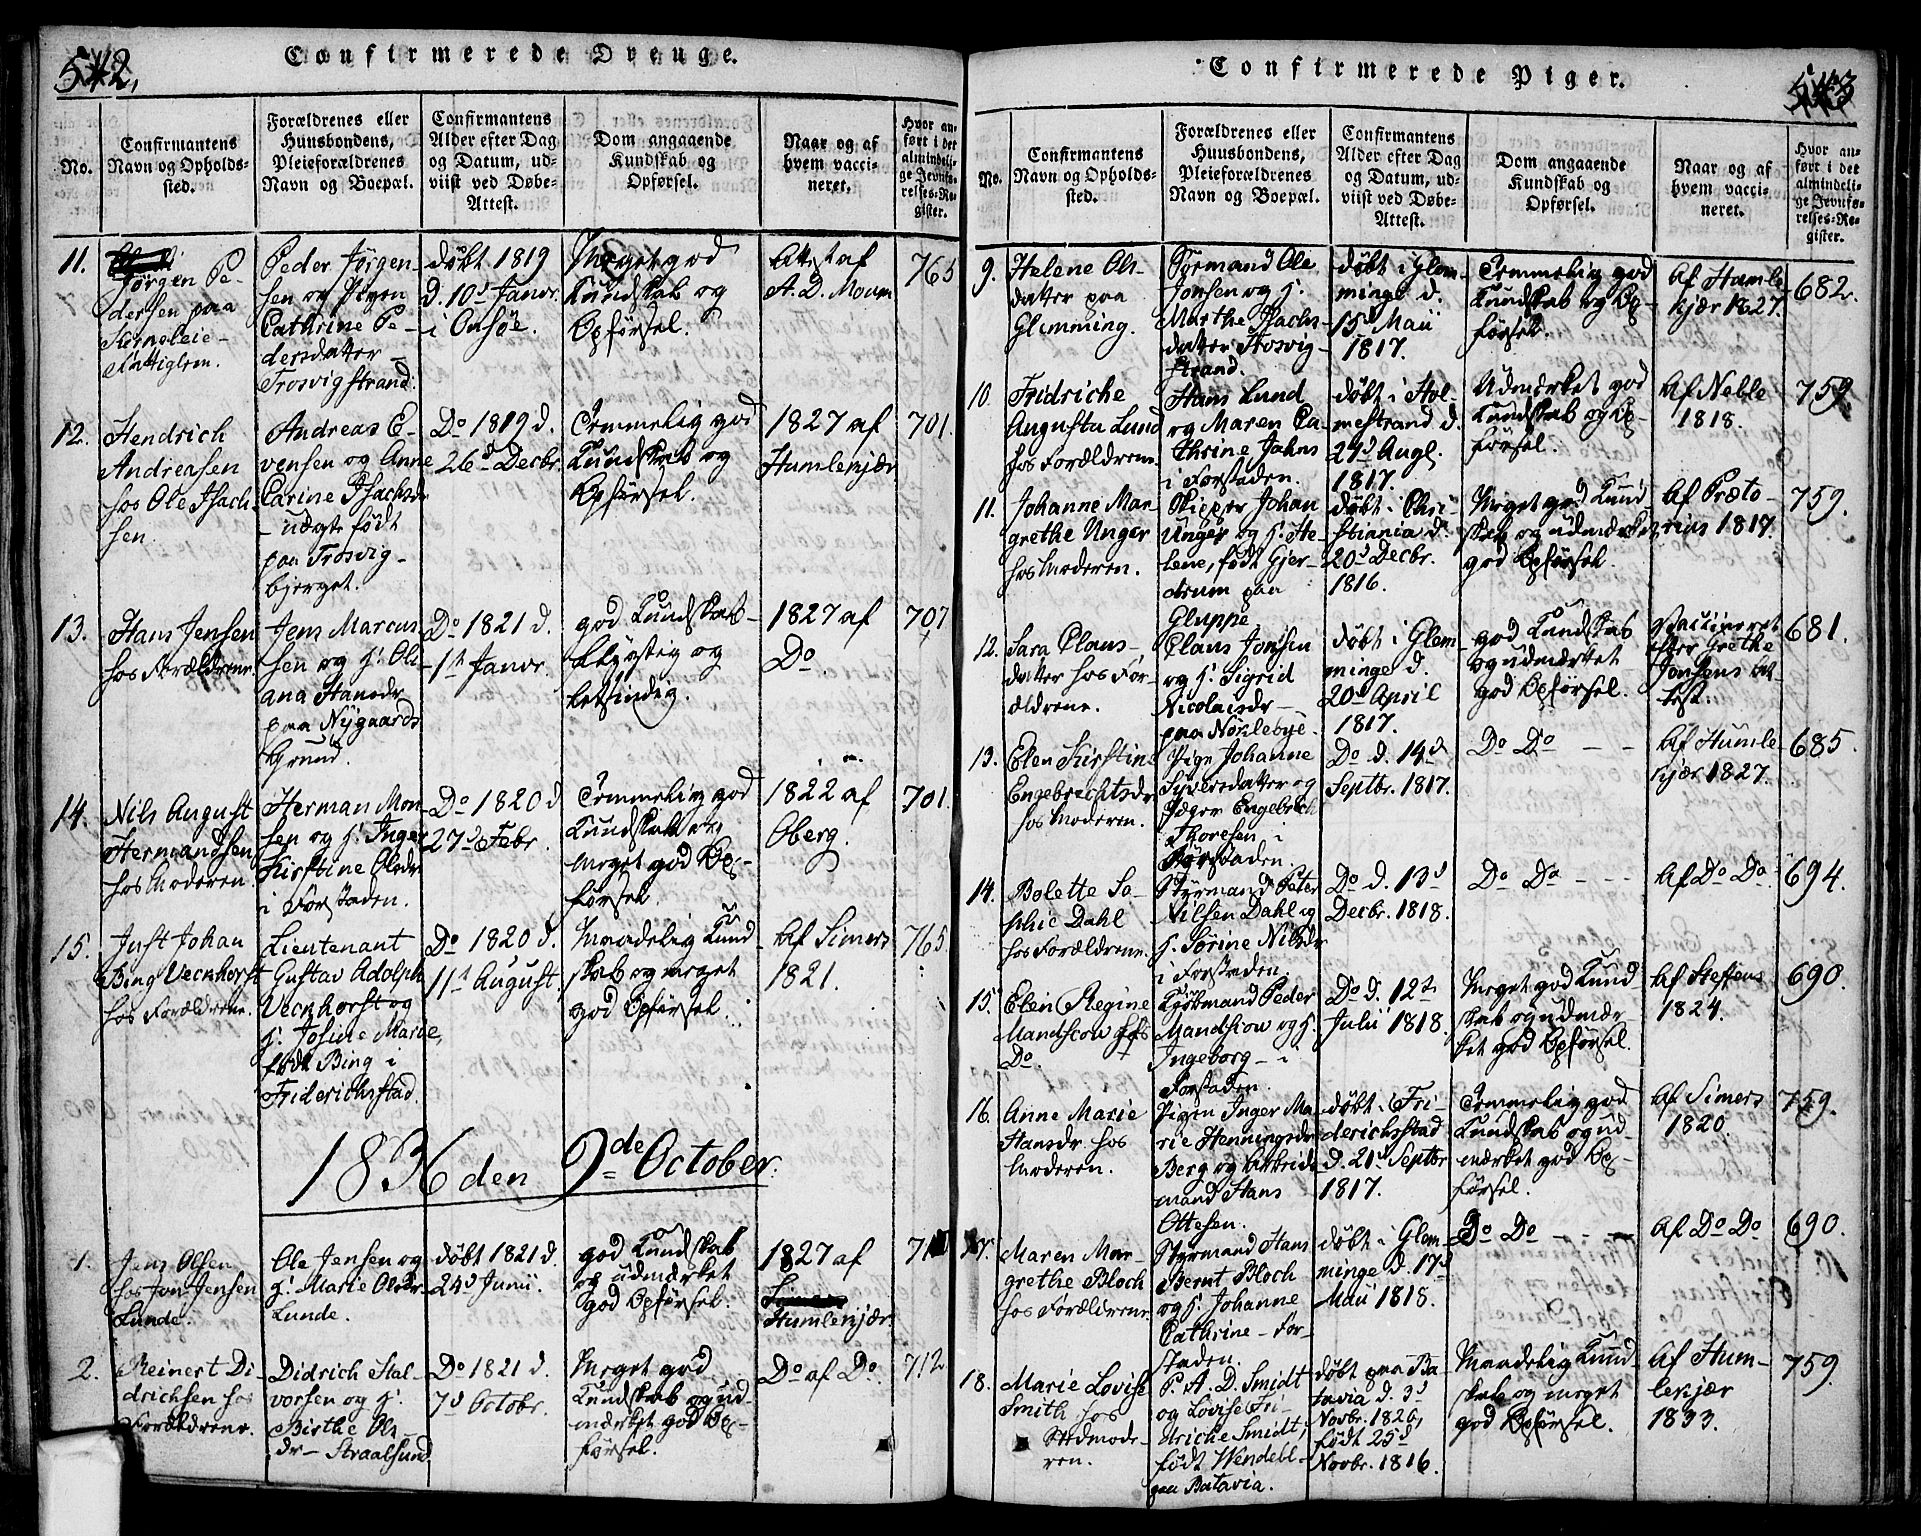 542.
Confirmerede Drenge.
No.
Confirmantens
Navn og Opholds-
sted.
Forældrenes eller
Huusbondens,
Pleieforældrenes
Navn og Boepæl.
Confirmantens
Alder efter Dag
og Datum, ud-
viist ved Døbe-
Attest.
Dom angaaende
Kundskab og
Opførsel.
Naar og af
hvem vacci-
neret.
Hvor an-
ført i det
almindeli-
ge Jevnfø-
relses-Re-
gister.
11.
Jörgen Pe-
dersen paa
Peder Jörgen-
sen og Pigen
Cathrine Pe-
dersdatter -
Trosvigstrand.
döbt 1819
d. 10d Janvr.
i Onsöe.
Meget god
Kundskab og
Opförsel.
Attest af
A. D. Moum
765
12.
Hendrich
Andreasen
hos Ole Isach-
sen.
Andreas E-
vensen og Anne
Carine Isachsdr
- uægte född
paa Trosvig-
bjerget.
Do 1819 d.
26d Decbr.
Temmelig god
Kundskab og
Opförsel.
1827 af
Humlekjær
701.
13.
Hans Jensen
hos Forældrene.
Jens Marcus-
sen og h. Ole-
ana Hansdr
paa Nygaards
Grund.
Do 1821 d.
1te Janvr.
god Kundskab -
flygtig og
letsindig.
1827 af
Do
707
14.
Nils August
Hermandsen
hos Moderen.
Herman Mon-
sen og h. Inger
Kirstine Olsdr
i Forstaden.
Do 1820 d
27d Febr.
Temmelig god
Kundskab og
meget god Op-
försel.
1822 af
Oberg.
701.
15.
Just Johan
Bing Vecnhorst
hos Forældrene.
Lieutenant
Gustav Adolph
Vecnhorst og
h. Josine Marie,
född Bing i
Friderichstad.
Do 1820 d.
11te August.
Maadelig Kund-
skab og meget
god Opförsel.
Af Simers
1821.
765.
1836 den 9de October.
1.
Jens Olsen
hos Jon Jensen
Lunde.
Ole Jensen og
h. Marie Olsdr -
Lunde.
döbt 1821 d.
24d Junii.
god Kundskab
og udmærket
god Opförsel.
1827 af
Humlekjær.
2.
Reinert Di-
drichsen hos
Forældrene.
Didrich Hal-
vorsen og h.
Birthe Ols-
dr - Straalsund
Do 1821 d
7d Octobr.
Meget god
Kundskab og ud-
mærket god Op-
försel.
Do af Do.
712
543
Confirmerede Piger.
No.
Confirmantens
Navn og Opholds-
sted.
Forældrenes eller
Huusbondens,
Pleieforældrenes
Navn og Boepæl.
Confirmantens
Alder efter Dag
og Datum, ud-
viist ved Døbe-
Attest.
Dom angaaende
Kundskab og
Opførsel.
Naar og af
hvem vacci-
neret.
Hvor an-
ført i det
almindeli-
ge Jevnfø-
relses-Re-
gister.
9.
Helene Ols-
datter paa
Glemming.
Sørmand Ole
Jonsen og h.
Marthe Isachs-
datter Trosvig-
strand.
döbt i Glem-
minge d.
15d Maii
1817.
Temmelig god
Kundskab og Op-
försel.
Af Humle-
kjær 1827.
682.
10.
Fridriche
Augusta Lund
hos Forældrene.
Hans Lund
og Maren Ca-
thrine Jahns
i Forstaden.
döbt i Hol-
mestrand d.
24d Augl.
1817.
Udmærket god
Kundskab og Op-
försel.
Af Neble
1818.
759
11.
Johanne Mar-
grethe Unger
hos Moderen.
Skipper Johan
Unger og h. He-
lene, född Gjer-
drum paa
Gluppe
döbt i Chri-
stiania d.
20d Decbr.
1816.
Meget god Kund-
skab og udmærket
god Opförsel.
Af Præto-
rius 1817.
759.
12.
Sara Claus-
datter hos For-
ældrene.
Claus Jonsen
og h. Sigrid
Nicolaisdr -
paa Nöklebye.
döbt i Glem-
minge d.
20d April
1817.
god Kundskab
og udmærket
god Opförsel.
Vaccineret
efter Grethe
Jonsens At-
test.
681.
13.
Elen Kirstine
Engebrechtsdr
hos Moderen.
Pige Johanne
Syversdatter og
Jæger Engebrech
Thoresen i
Forstaden.
Do d. 14d
Septbr. 1817.
Do Do - -
Af Humle-
kjær 1827.
685.
14.
Bolette So-
phie Dahl
hos Forældrene.
Styrmand Peter
Nilsen Dahl og
h. Sörine Nilsdr
i Forstaden.
Do d. 13d
Decbr. 1818.
Do Do - - -
Af Do Do.
694.
15.
Elen Regine
Mandscow hos
Do.
Kjöbmand Peder
Mandscow og h.
Ingeborg - i
Forstaden.
Do d. 12te
Julii 1818.
Meget god Kund-
skab og udmær-
ket god Opförsel.
Af Steffens
1824.
690.
16.
Anne Marie
Hansdr hos
Moderen.
Pigen Inger Ma-
rie Henningsdr
Berg og Arbeids-
mand Hans
Ottesen.
döbt i Fri-
derichstad
d. 21d Septbr
1817.
Temmelig god
Kundskab og ud-
mærket god Op-
försel.
Af Simers
1820.
759.
17.
Maren Mar-
grethe Bloch
hos Forældrene
Styrmand Hans
Bernt Bloch
og h. Johanne
Cathrine - For-
staden.
döbt i Glem-
minge d. 17d
Maii 1818.
Do Do - - -
Af Do Do
690.
18.
Marie Lovise
Smith hos
Stedmode-
ren.
P. A. D. Smidt
og Lovise Fri-
driche Smidt,
född Wendebl-
paa Batavia.
döbt paa Ba-
tavia d. 3d
Novbr. 1820,
född 25d
Novbr. 1816.
Maadelig Kund-
skab og meget
god Opförsel.
Af Hum-
lekjær
1833.
759.